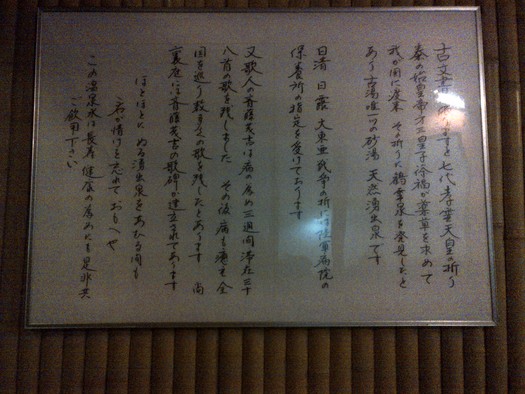 古文書によりますと七代孝霊天皇の折り
秦の始皇帝才三皇子徐福が薬草を求めて
我が国に渡来 その折りに鶴霊泉を発見したと
あり 古湯唯一つの砂湯 天然湧出泉です
日清 日露 大東亜戦争の折には陸軍病院の
保養所の指定を受けております
又歌人の斉藤茂吉は病の為め三週間滞在三十
八首の歌を残しました その後病も癒え全
国を巡り数多くの歌を残したとあります 尚
裏庭には斉藤茂吉の歌碑が建立されてあります
ほとほとに ぬるき湧出泉をあむる間も
君が情けを 忘れておもへや
この温泉水は長寿 健康の為めにも是非共
ご飲用下さい